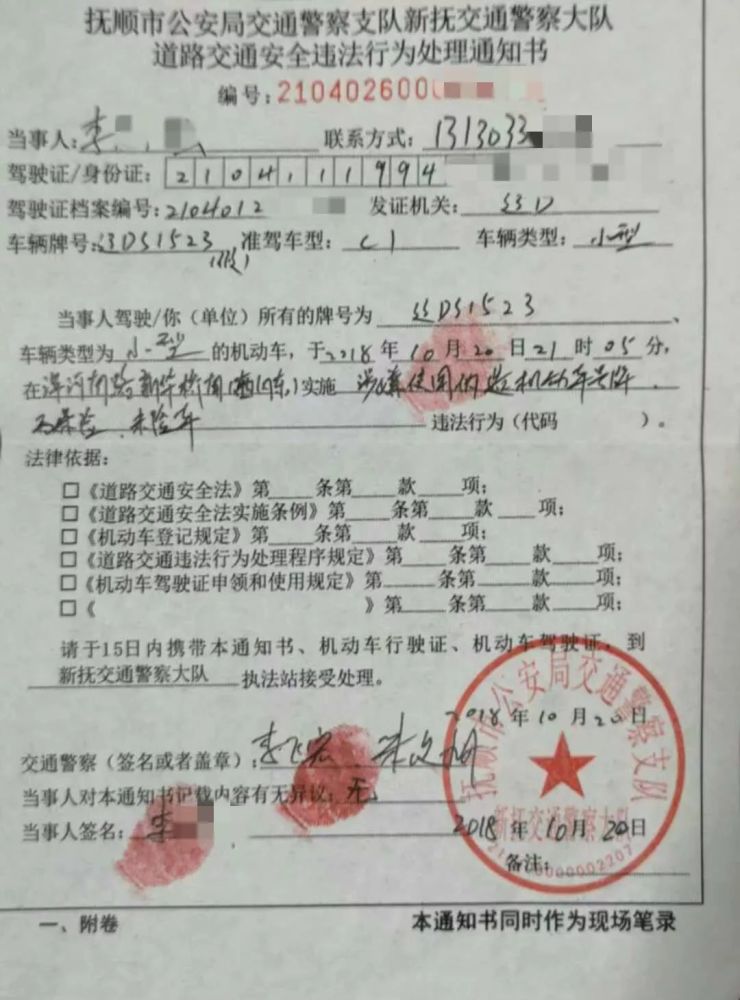 抚顺市公安局交通警察支队新抚交通警察大队
道路交通安全违法行为处理通知书
编号:210402600
当事人:李 联系方式: 1313033
驾驶证/身份证: 2104111994
驾驶证档案编号:2104012 发证机关: 辽D
车辆牌号:辽DS1523 准驾车型: C1 车辆类型: 小型
(假)
当事人驾驶/你(单位)所有的牌号为 辽DS1523、
车辆类型为 小型 的机动车,于2018年10月20日21时05分,
在浑河南路新华桥 实施 涉嫌使用伪造机动车号牌.
未检车 违法行为(代码 )。
法律依据:
□《道路交通安全法》第 条第 款 项;
□《道路交通安全法实施条例》第 条第 款 项;
□《机动车登记规定》第 条第 款 项;
□《道路交通违法行为处理程序规定》第 条第 款 项;
□《机动车驾驶证申领和使用规定》第 条第 款 项;
□《 》第 条第 款 项;
请于15日内携带本通知书、机动车行驶证、机动车驾驶证,到
新抚交通警察大队 执法站接受处理。
2018年10月20日
交通警察(签名或者盖章):李
当事人对本通知书记载内容有无异议:无.
当事人签名:李
2018年10月20日
备注:
抚顺市公安局交通警察支队
新抚交通警察大队
一、附卷 本通知书同时作为现场笔录